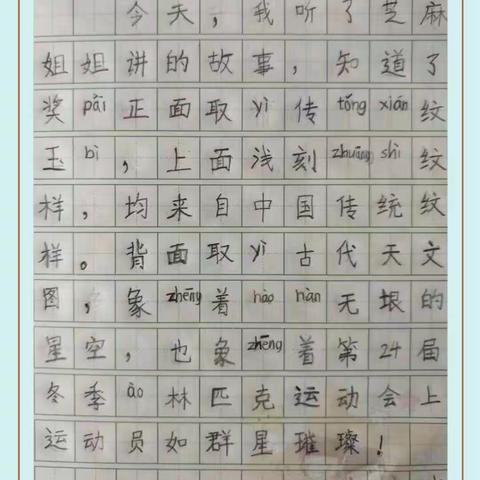 今天，我听了芝麻
姐姐讲的故事，知道了
奖pǎi正面取yì传tǒng xián纹
玉bì，上面浅刻zhuāng shì纹
样，均来自中国传统纹
样。背面取yì古代天文
图，象zhēng着hào hàn无垠的
星空，也象zhēng着第24届
冬季ào林匹克运动会上
运动员如群星璀璨！